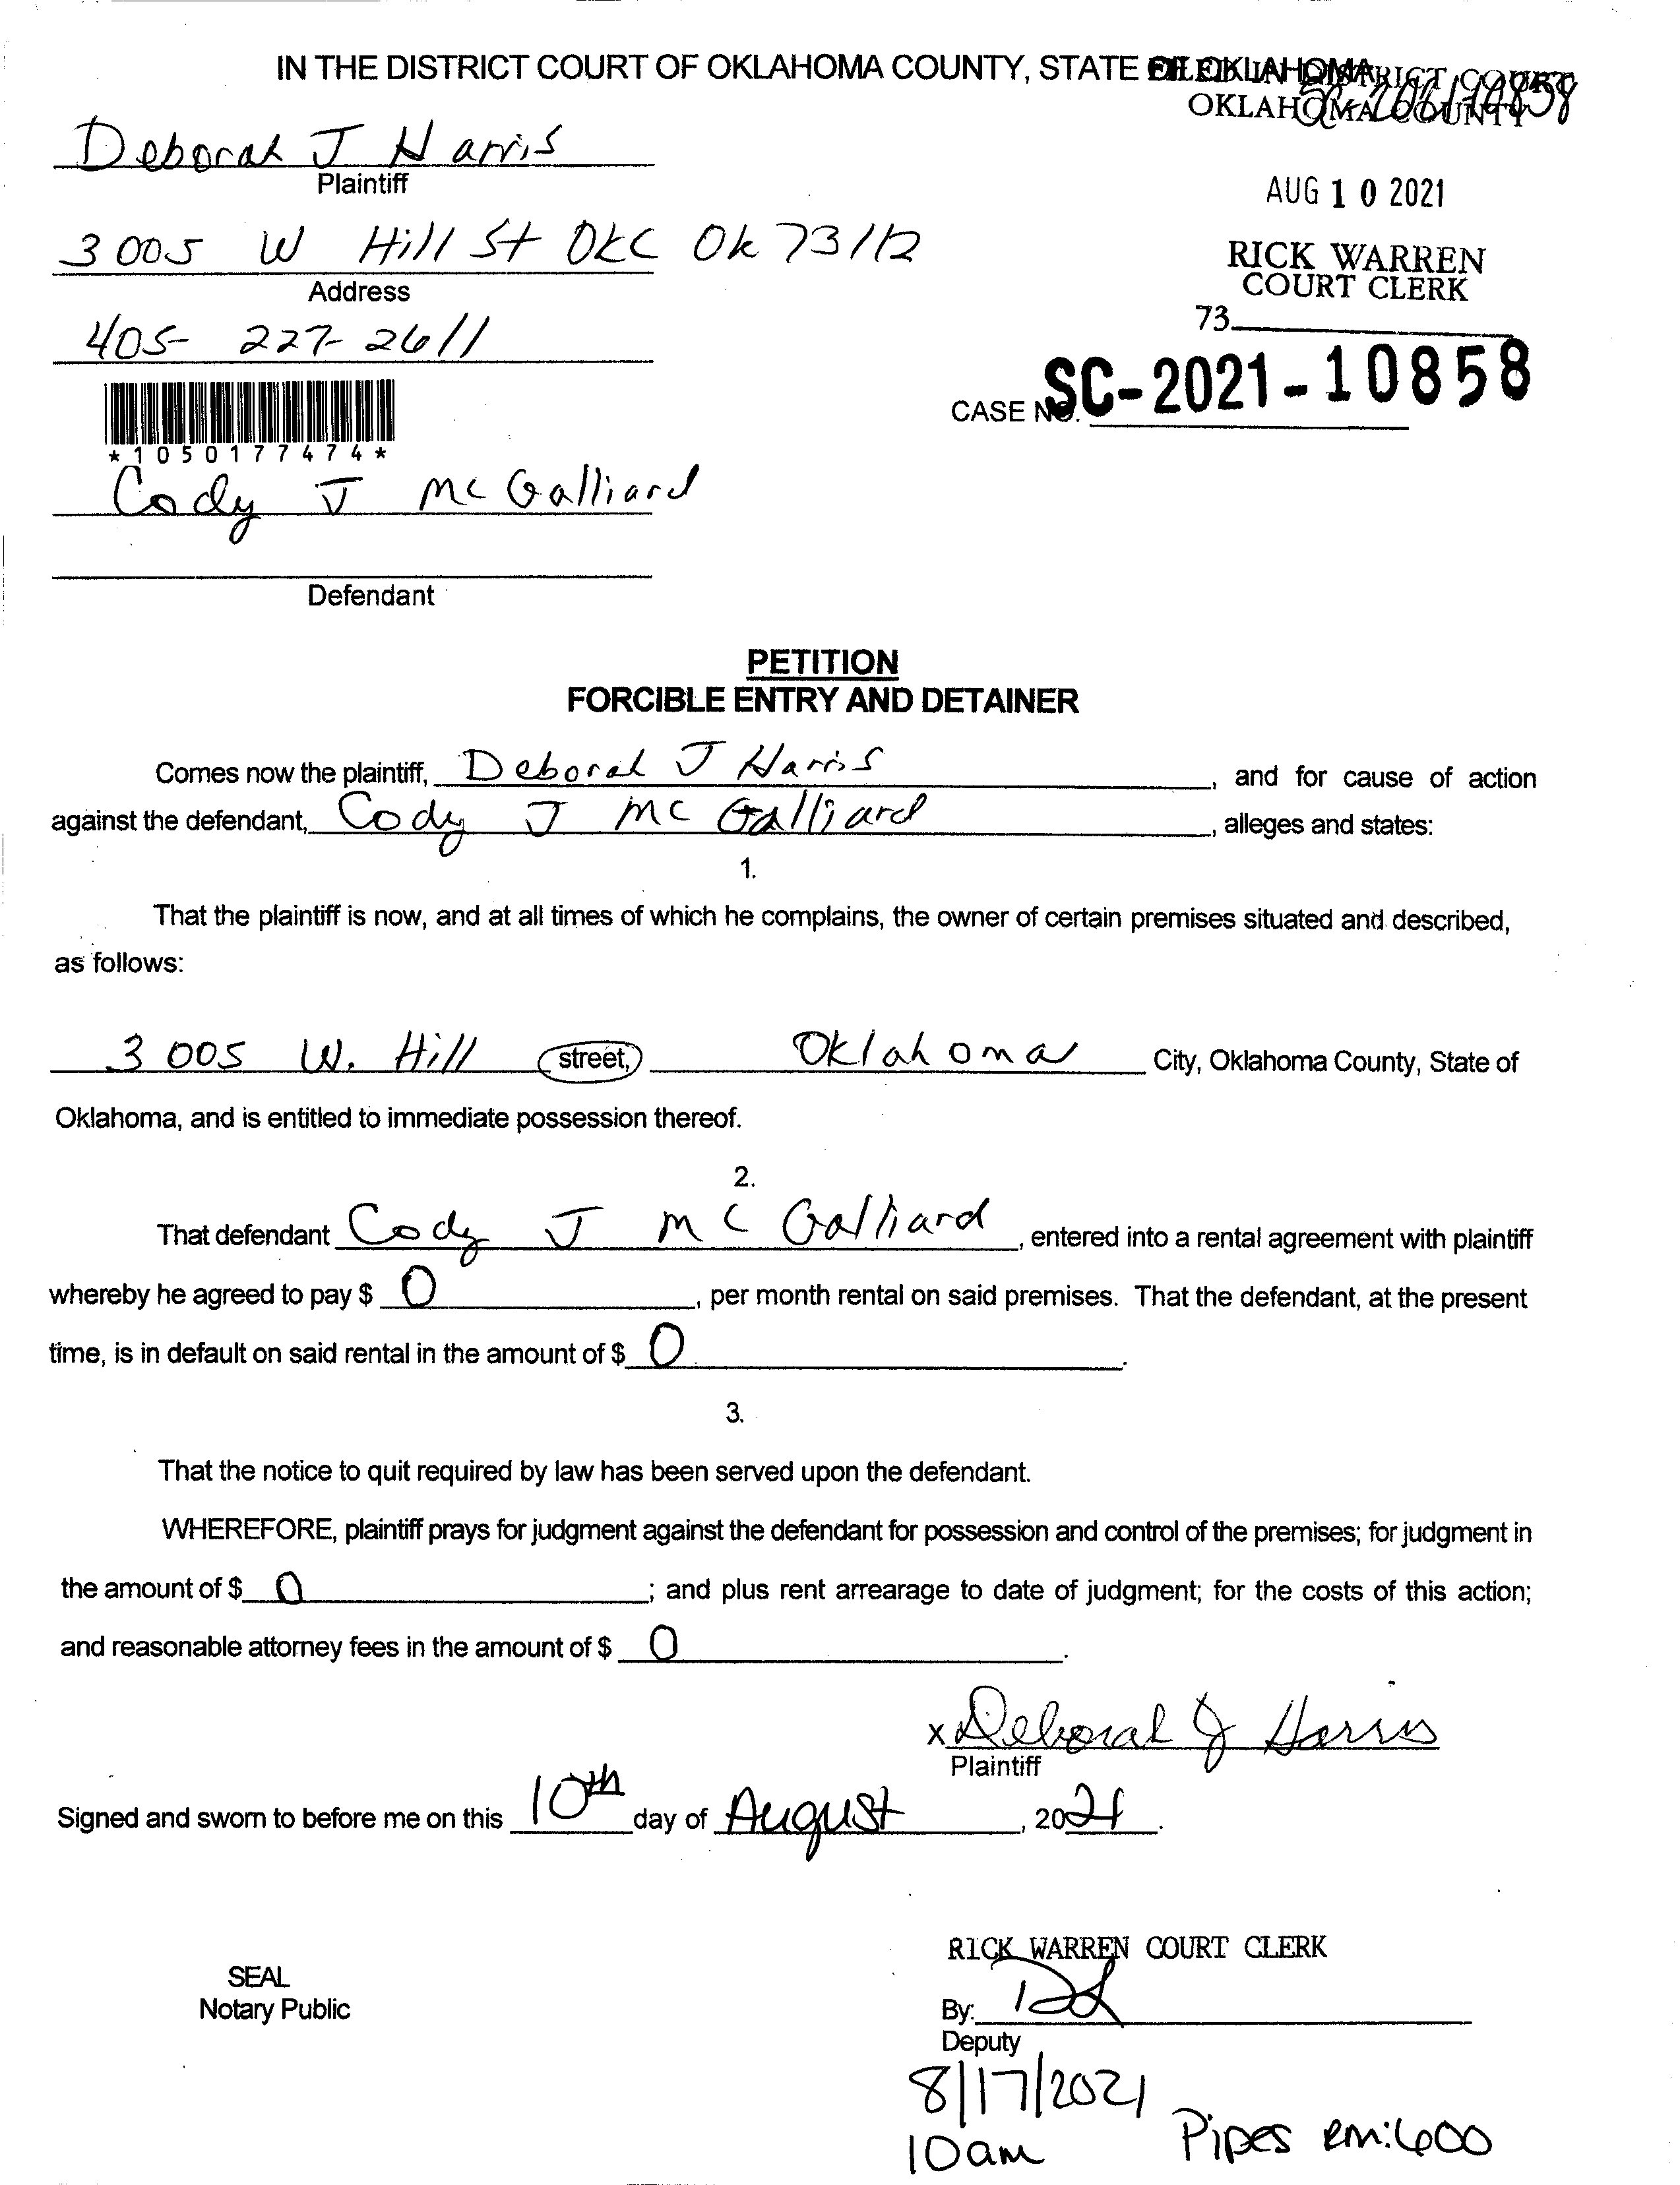 IN THE DISTRICT COURT OF OKLAHOMA COUNTY, STATE OF OKLAHOMA
FILED IN DISTRICT COURT
OKLAHOMA COUNTY
Deborah J Harris
Plaintiff
AUG 10 2021
3005 W Hill St OKC Ok 73112
Address
RICK WARREN
COURT CLERK
405-227-2611
73
CASE NO. SC-2021-10858
*1050177474*
Cody J McGalliard
Defendant
PETITION
FORCIBLE ENTRY AND DETAINER
Comes now the plaintiff, Deborah J Harris, and for cause of action
against the defendant, Cody J McGalliard, alleges and states:
1.
That the plaintiff is now, and at all times of which he complains, the owner of certain premises situated and described,
as follows:
3005 W. Hill street, Oklahoma City, Oklahoma County, State of
Oklahoma, and is entitled to immediate possession thereof.
2.
That defendant Cody J McGalliard, entered into a rental agreement with plaintiff
whereby he agreed to pay $ 0, per month rental on said premises. That the defendant, at the present
time, is in default on said rental in the amount of $ 0.
3.
That the notice to quit required by law has been served upon the defendant.
WHEREFORE, plaintiff prays for judgment against the defendant for possession and control of the premises; for judgment in
the amount of $ 0; and plus rent arrearage to date of judgment; for the costs of this action;
and reasonable attorney fees in the amount of $ 0.
x Deborah J Harris
Plaintiff
Signed and sworn to before me on this 10th day of August, 2021.
RICK WARREN COURT CLERK
SEAL
Notary Public
By:
Deputy
8/17/2021
10am
Pipes rm:600